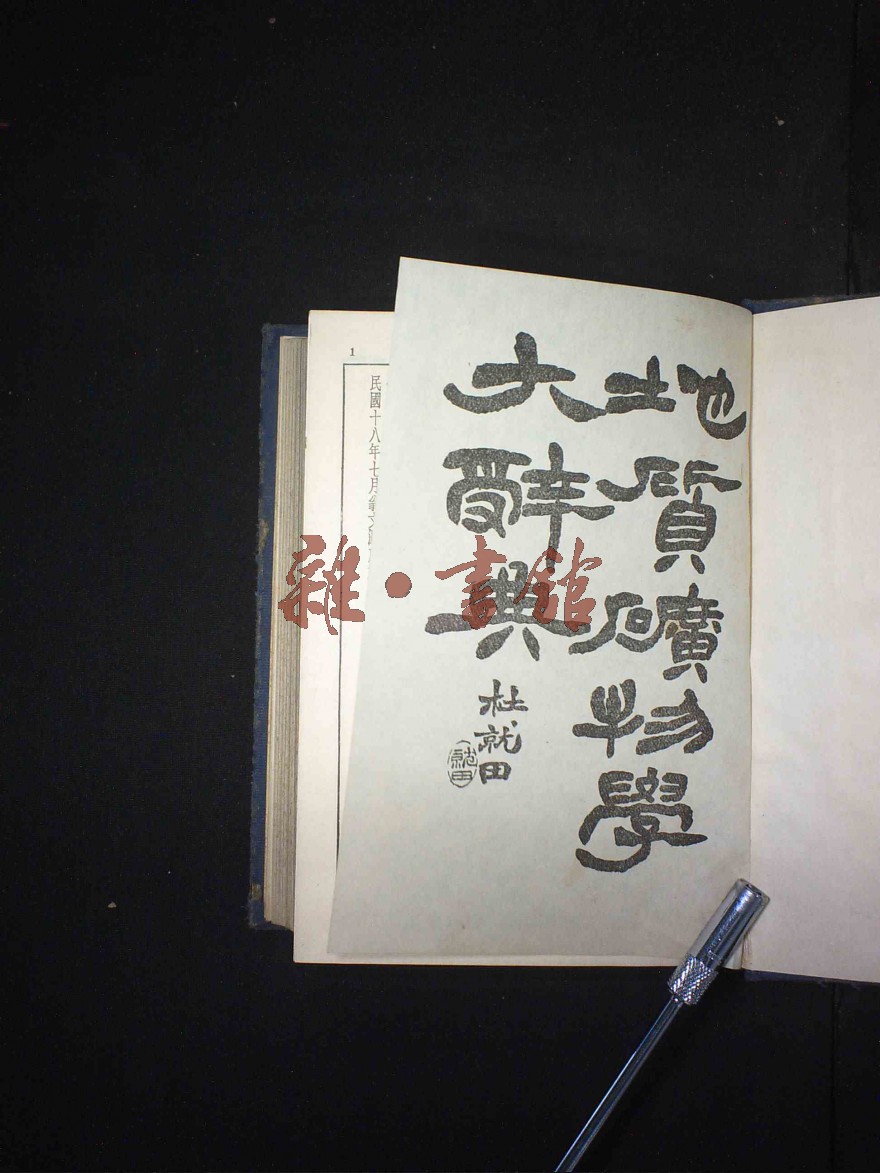 地質礦物學
大辭典
杜就田
就田
1
民國十八年七月
雜·書館